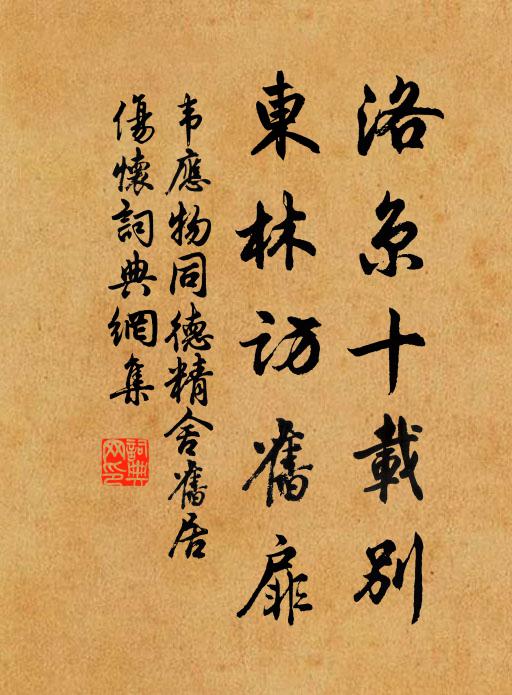 洛京十載別
東林訪舊扉
韦應物同德精舍舊居
傷懷詞典網集
詞典網印